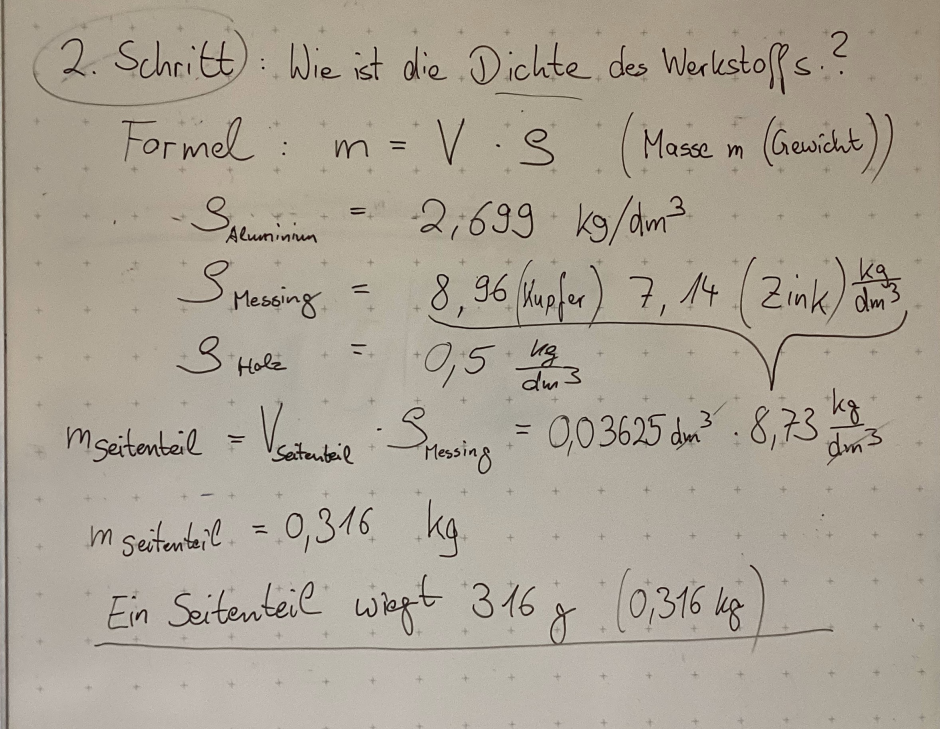 2. Schritt : Wie ist die Dichte des Werkstoffs.?
Formel : m = V · ϱ (Masse m (Gewicht))
ϱ Aluminium = 2,699 kg/dm³
ϱ Messing = 8,96 (Kupfer) 7,14 (Zink) kg/dm³
ϱ Holz = 0,5 kg/dm³
m Seitenteil = V Seitenteil · ϱ Messing = 0,03625 dm³ · 8,73 kg/dm³
m Seitenteil = 0,316 kg
Ein Seitenteil wiegt 316 g (0,316 kg)